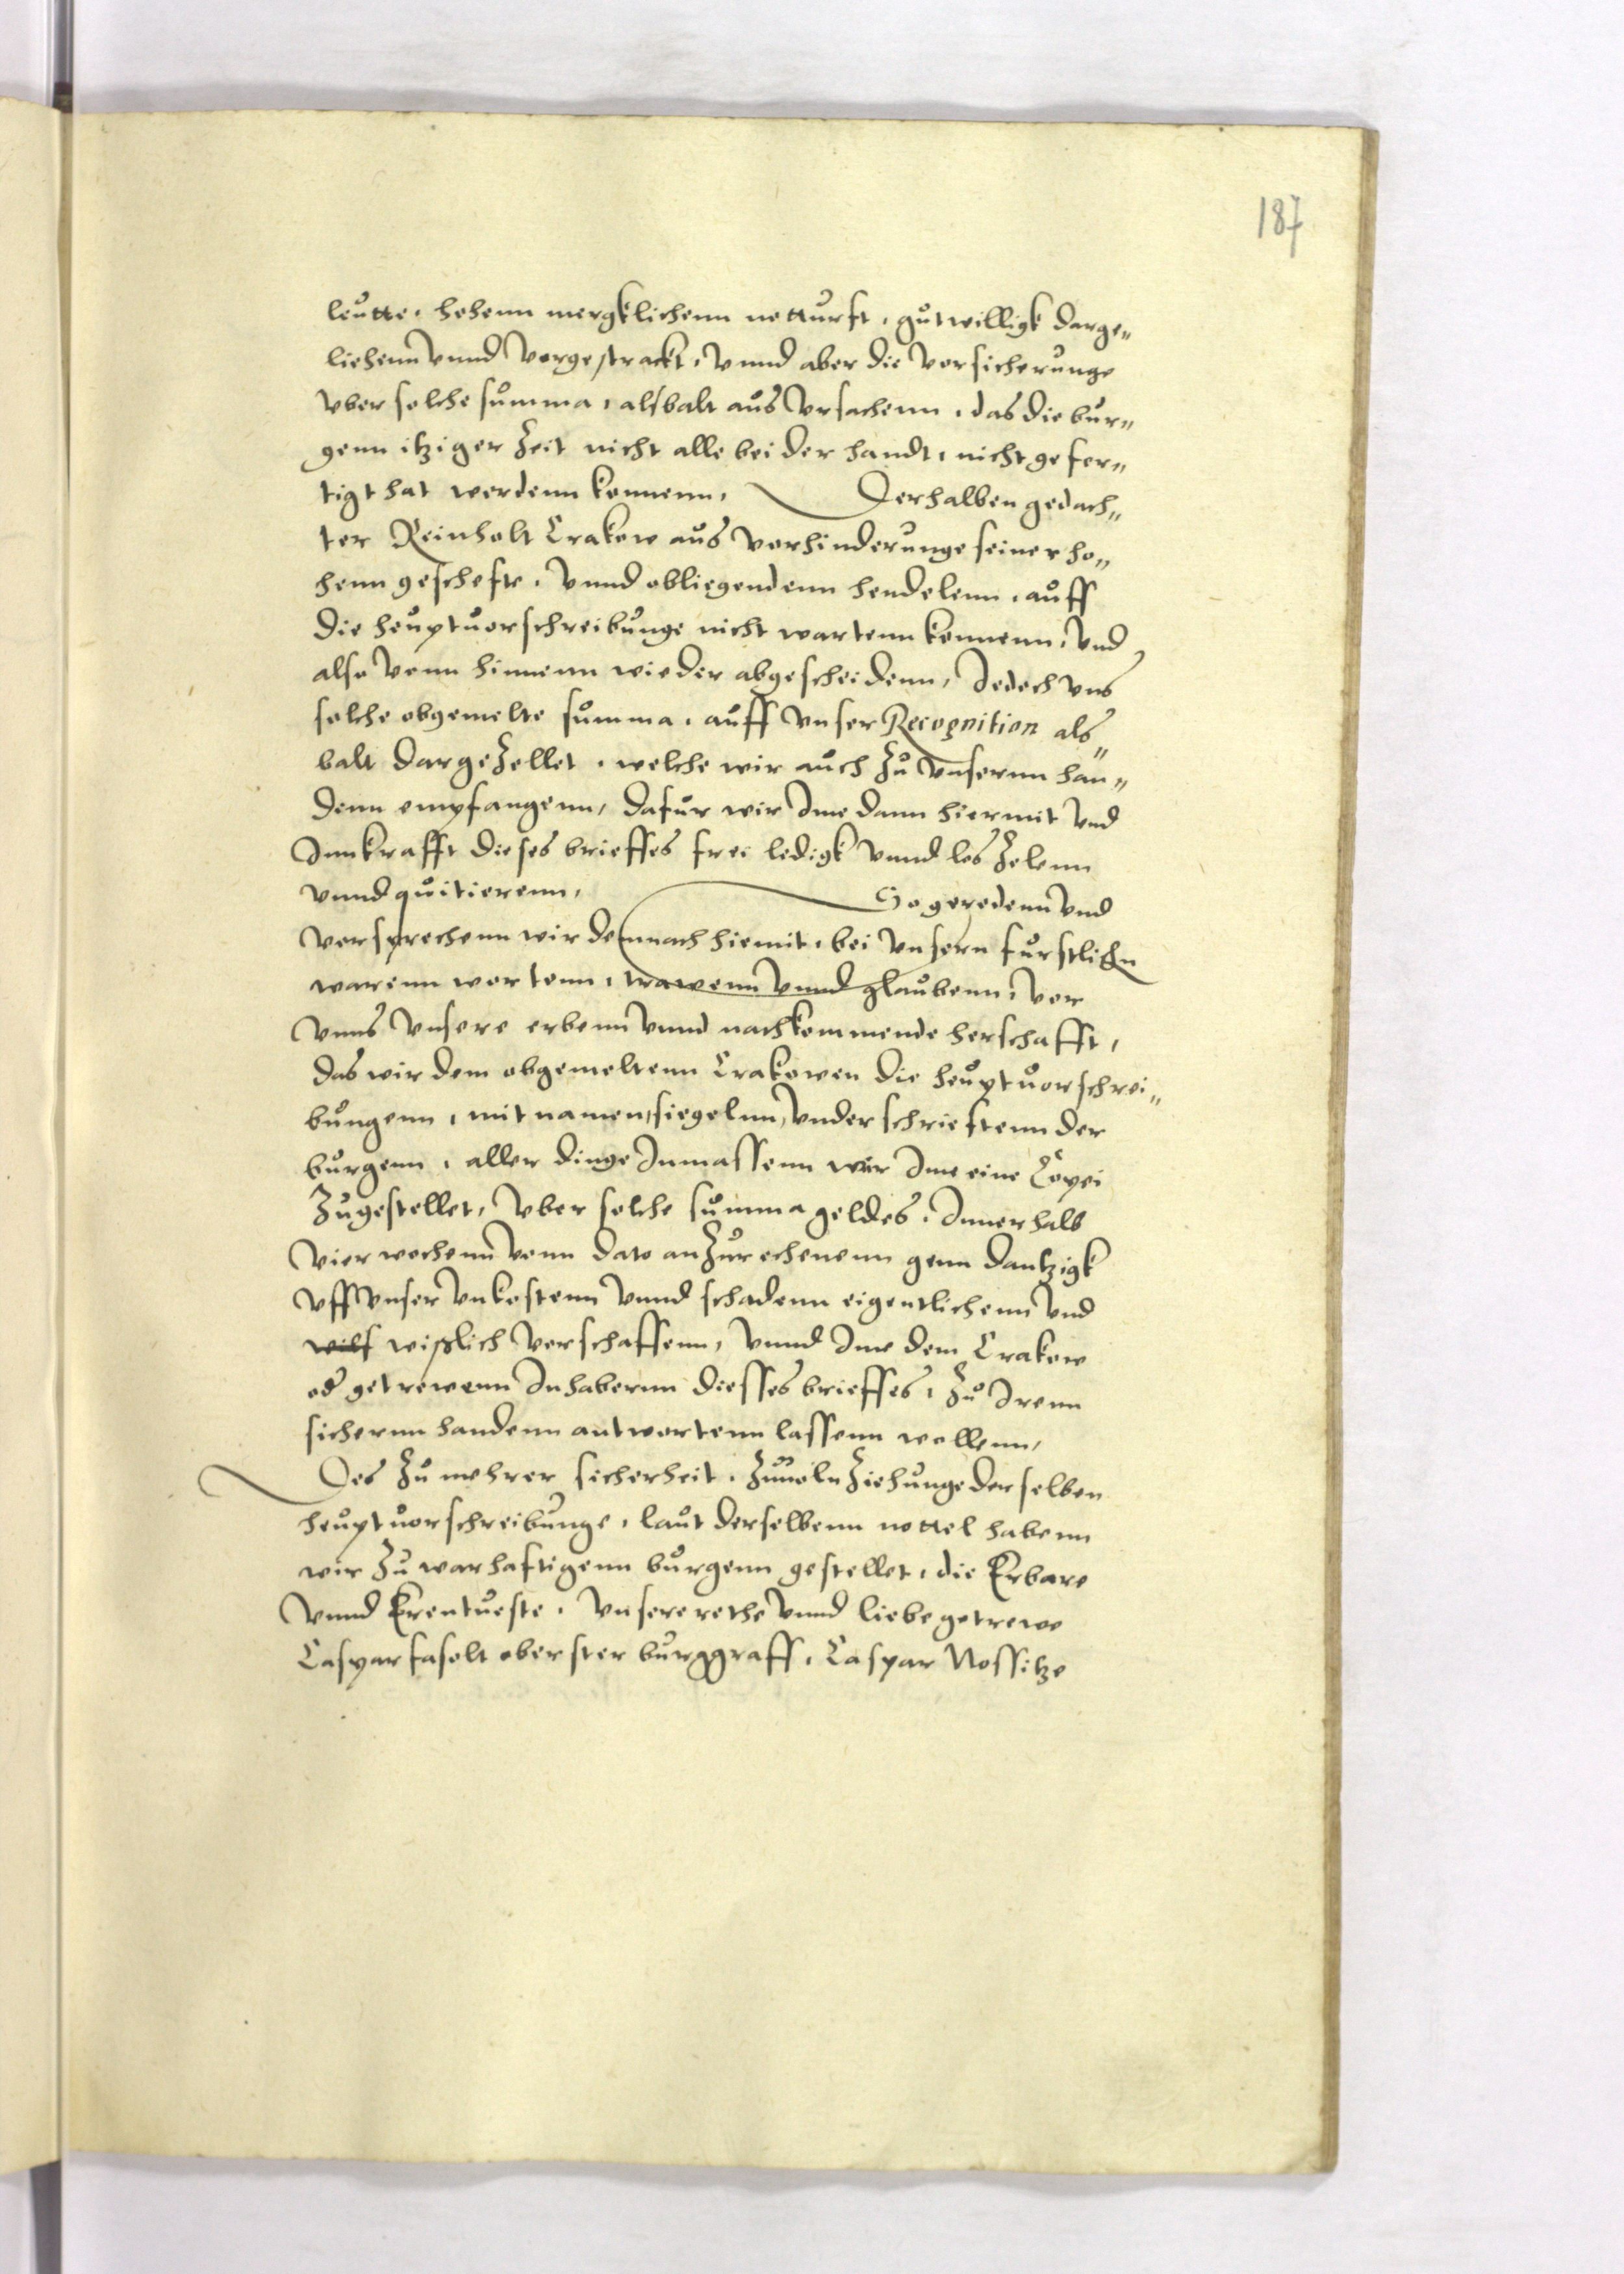 187
leutte, hohenn mergklichenn notturft, gutwilligk darge„
liehenn vnnd vorgestrackt, vnnd aber die vorsicherunge
vber solche summa, alsbalt aus vrsachenn, das die bur„
genn itziger Zeit nicht alle bei der handt, nicht gefer„
tigt hat werdenn konnenn, Derhalben gedach„
ter Reinholt Crakow aus vorhinderunge seiner ho„
henn geschefte, vnnd obliegendenn hendelenn, auff
die heuptuorschreibunge nicht wartenn konnenn, vnd
also vonn hinnenn wieder abgescheidenn, Jedoch vns
solche obgemelte summa, auff vnser Recognition als„
balt dargezellet, welche wir auch zu vnsernn han„
denn empfangenn, dafur wir Ime dann hiermit vnd
Inn krafft dieses brieffes frei ledigk vnnd los zelenn
vnnd quitierenn, So geredenn vnd
vorsprechenn wir demnach hiemit, bei vnsern furstlichn
warenn wortenn, trawenn vnnd glaubenn, vor
vnns vnsere erbenn vnnd nachkommende herschafft,
das wir dem obgemeltenn Crakowen die heuptuorschrei„
bungenn, mit namen, siegelnn, vnderschrieftenn der
burgenn, aller dinge Inmassenn wir Ime eine Copei
Zugestellet, vber solche summa geldes, Innerhalb
vier wochenn vonn dato anzurechenenn genn dantzigk
vff vnser vnkostenn vnnd schadenn eigentlichenn vnd
wilf wißlich vorschaffenn, vnnd Ime dem Crakow
od getrewenn Inhabernn diesses brieffes, zu Irenn
sichernn handenn antwortenn lassenn wollenn,
Des zu mehrer sicherheit, zuuolnziehunge derselben
heuptuorschreibunge, laut derselbenn nottel habenn
wir zu warhaftigenn burgenn gestellet, die Erbare
vnnd Erentueste, vnsere rethe vnnd liebe getrewe
Caspar fasolt oberster burggraff, Caspar Nossitze